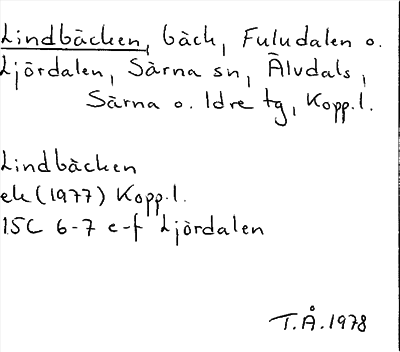 Lindbäcken, bäck, Fuludalen o.
Ljördalen, Särna sn, Älvdals,
Särna o. Idre tg, Kopp.l.
Lindbäcken
ek (1977) Kopp.l.
15C 6-7 e-f Ljördalen
T.Å.1978